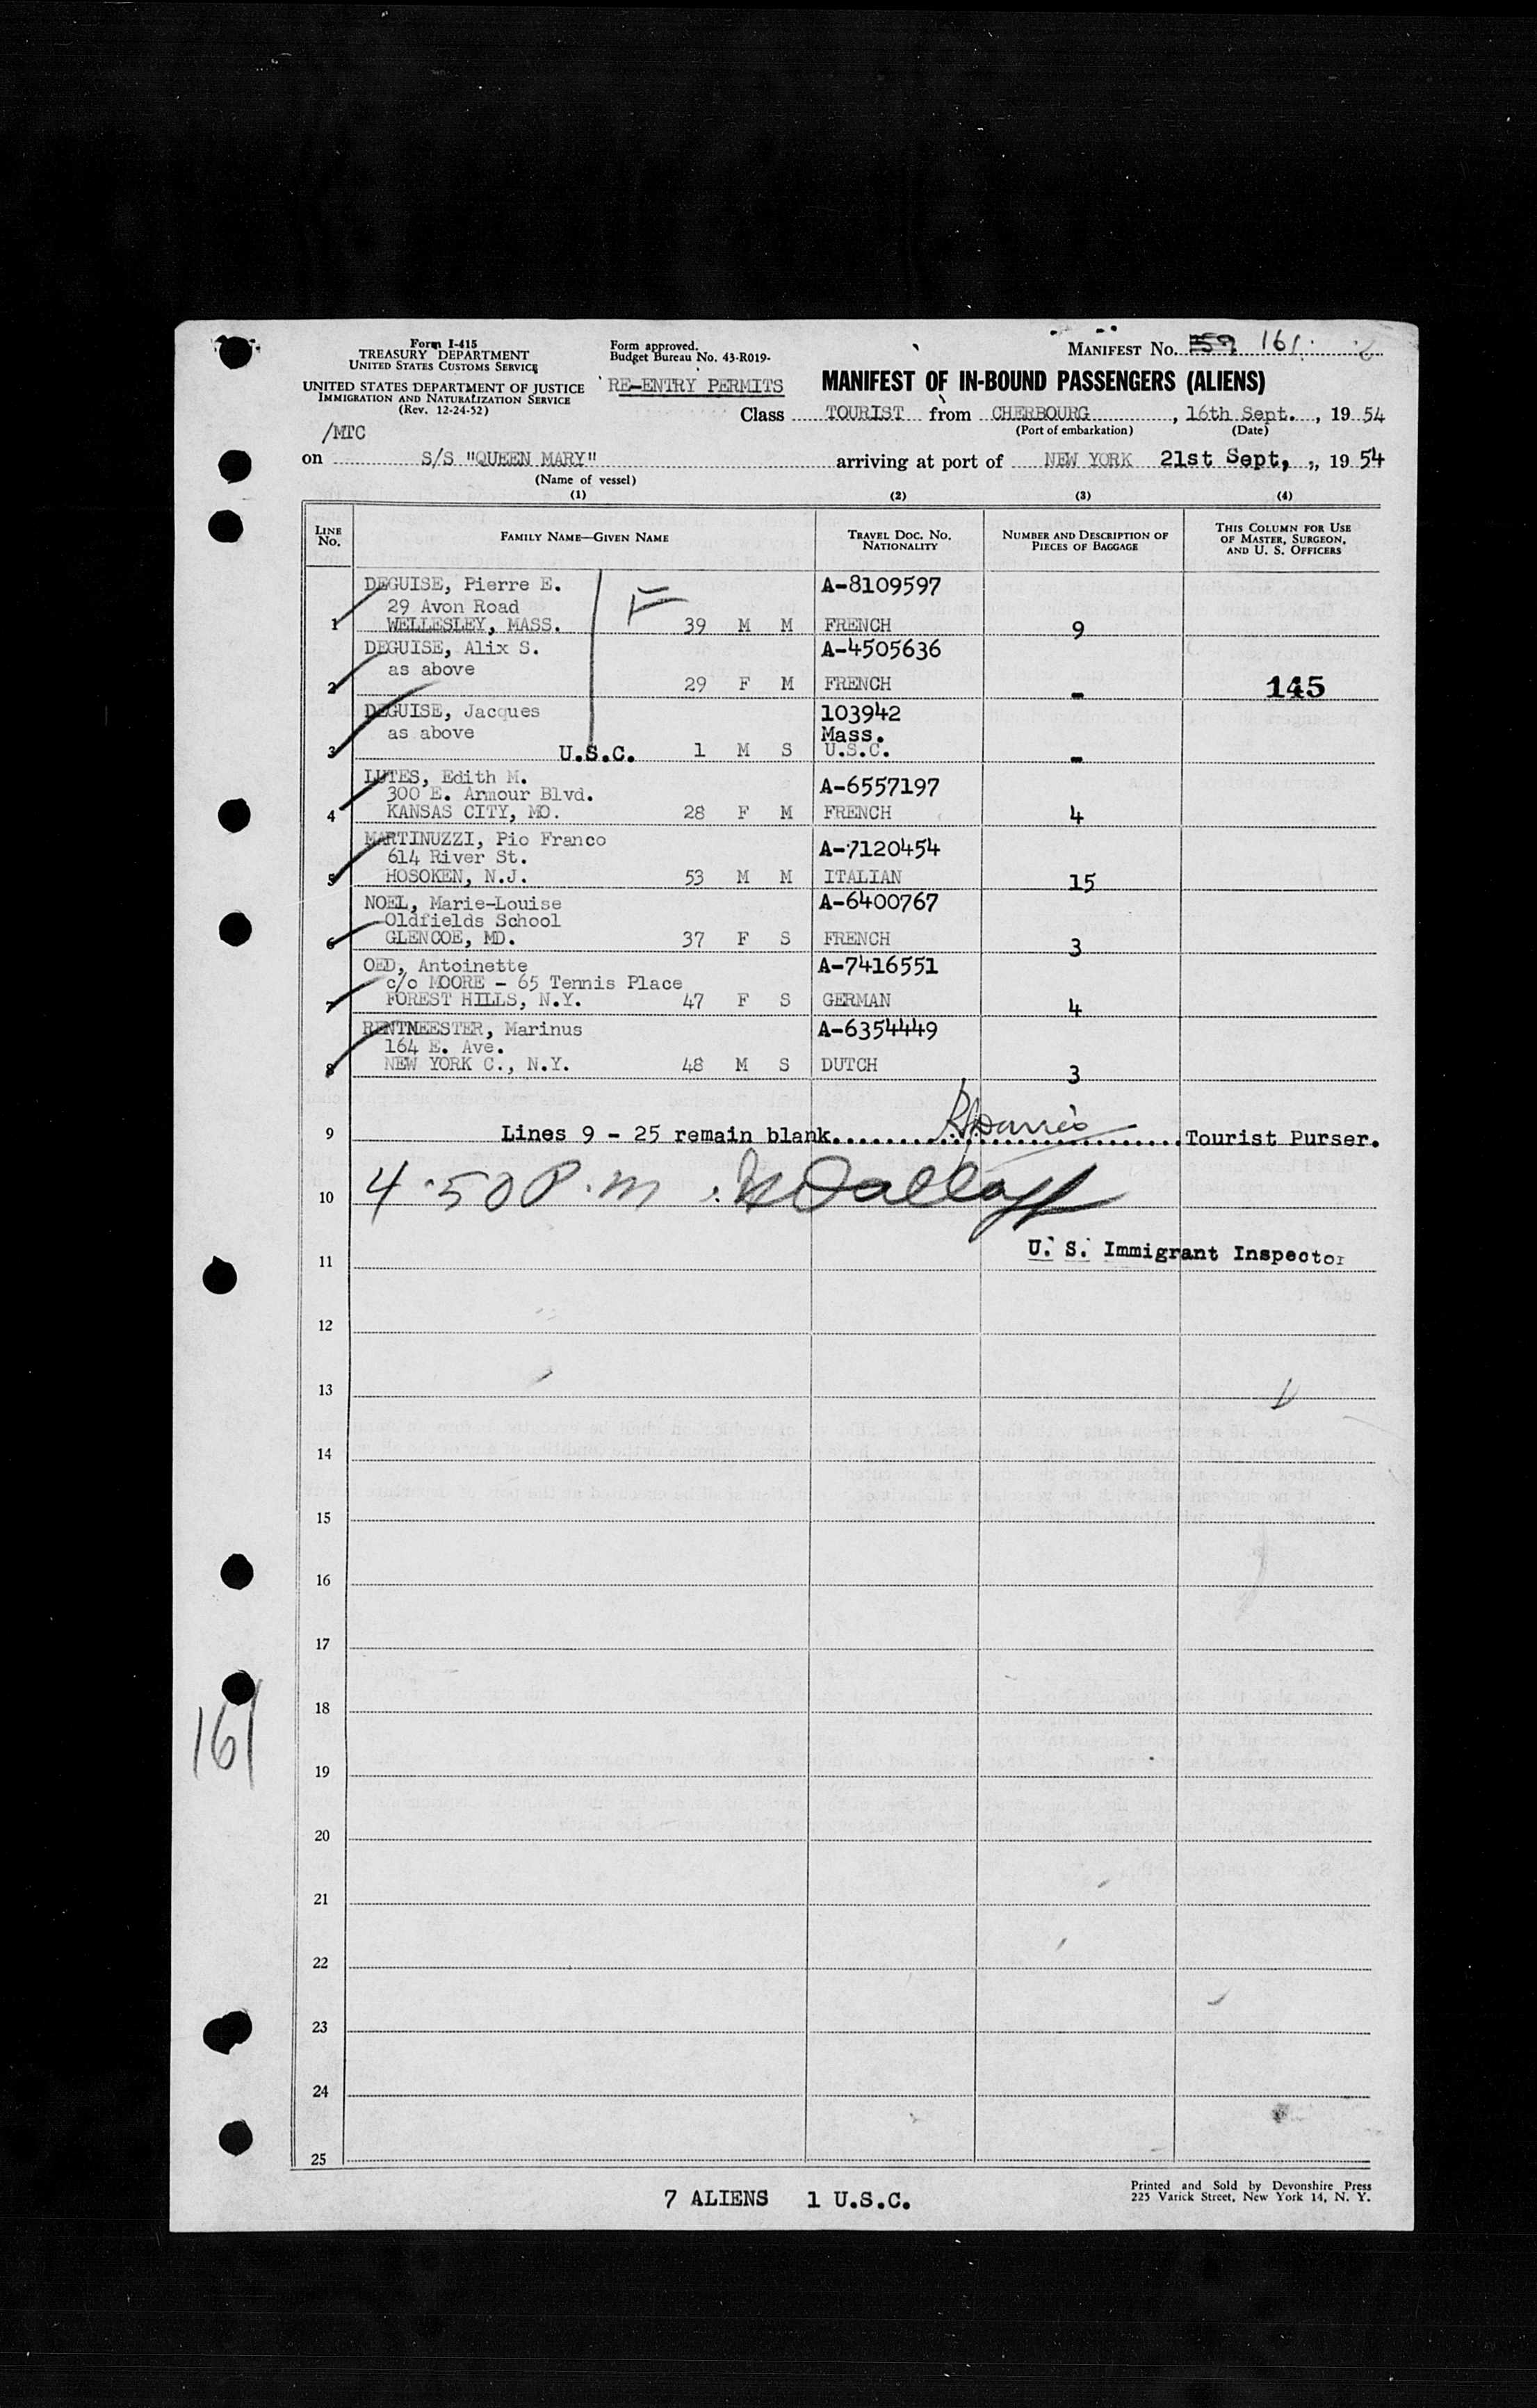 Form I-415
TREASURY DEPARTMENT
UNITED STATES CUSTOMS SERVICE
UNITED STATES DEPARTMENT OF JUSTICE
IMMIGRATION AND NATURALIZATION SERVICE
(Rev. 12-24-52)
/MTC
Form approved.
Budget Bureau No. 43-R019-
RE-ENTRY PERMITS
MANIFEST NO. 161
MANIFEST OF IN-BOUND PASSENGERS (ALIENS)
Class TOURIST from CHERBOURG, 16th Sept., 19 54
(Port of embarkation) (Date)
on S/S "QUEEN MARY" arriving at port of NEW YORK 21st Sept, ., 19 54
(Name of vessel)
(1) (2) (3) (4)
LINE NO. FAMILY NAME—GIVEN NAME TRAVEL DOC. NO. NATIONALITY NUMBER AND DESCRIPTION OF PIECES OF BAGGAGE THIS COLUMN FOR USE OF MASTER, SURGEON, AND U. S. OFFICERS
DEGUISE, Pierre E. A-8109597
29 Avon Road F
1 WELLESLEY, MASS. 39 M M FRENCH 9
DEGUISE, Alix S. A-4505636
as above
2 29 F M FRENCH - 145
DEGUISE, Jacques 103942
as above Mass.
3 U.S.C. 1 M S U.S.C. -
LUTES, Edith M. A-6557197
300 E. Armour Blvd.
4 KANSAS CITY, MO. 28 F M FRENCH 4
MARTINUZZI, Pio Franco A-7120454
614 River St.
5 HOSOKEN, N.J. 53 M M ITALIAN 15
NOEL, Marie-Louise A-6400767
Oldfields School
6 GLENCOE, MD. 37 F S FRENCH 3
OED, Antoinette A-7416551
c/o MOORE - 65 Tennis Place
7 FOREST HILLS, N.Y. 47 F S GERMAN 4
RENTMEESTER, Marinus A-6354449
164 E. Ave.
8 NEW YORK C., N.Y. 48 M S DUTCH 3
9 Lines 9 - 25 remain blank. Tourist Purser.
10 4.50 P.m.
11 U. S. Immigrant Inspector
12
13
14
15
16
17
161
18
19
20
21
22
23
24
25
7 ALIENS 1 U.S.C.
Printed and Sold by Devonshire Press
225 Varick Street, New York 14, N. Y.